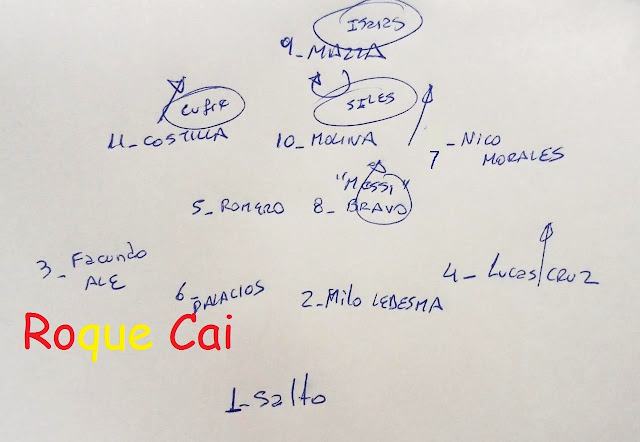 ISAIAS
9_ MAZZA
CUFRE
SILES
11_ COSTILLA
10_ MOLINA
7_ NICO
MORALES
"MESSI"
5_ ROMERO
8_ BRAVO
3_ Facundo
ALE
6_ PALACIOS
2_ Milo LEDESMA
4_ LUCAS CRUZ
Roque Cai
1_ Salto